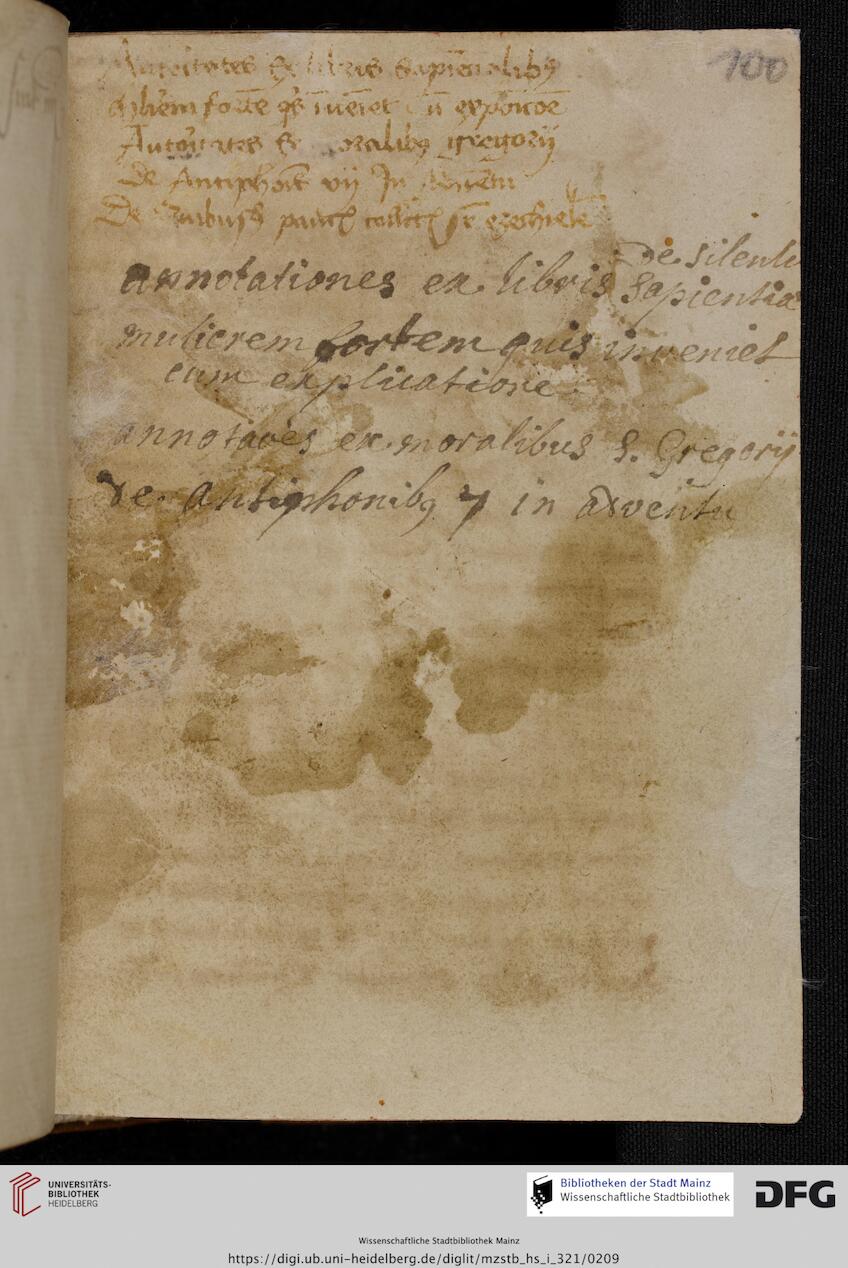 100
Autoritates ex libris sapiēcialibꝫ
fortē q̄s īueīet cū exposicōe
Autoritates ex moralibꝫ gregorij
De Antiphoīs vij In Aduentu
De
De silenti
annotationes ex libris Sapientiæ
mulierem fortem quis inveniet
cum explicatione.
annotaōes ex moralibus S. Gregorij
de antiphonibꝫ 7 in adventu
UNIVERSITÄTS-
BIBLIOTHEK
HEIDELBERG
Bibliotheken der Stadt Mainz
Wissenschaftliche Stadtbibliothek
DFG
Wissenschaftliche Stadtbibliothek Mainz
https://digi.ub.uni-heidelberg.de/diglit/mzstb_hs_i_321/0209